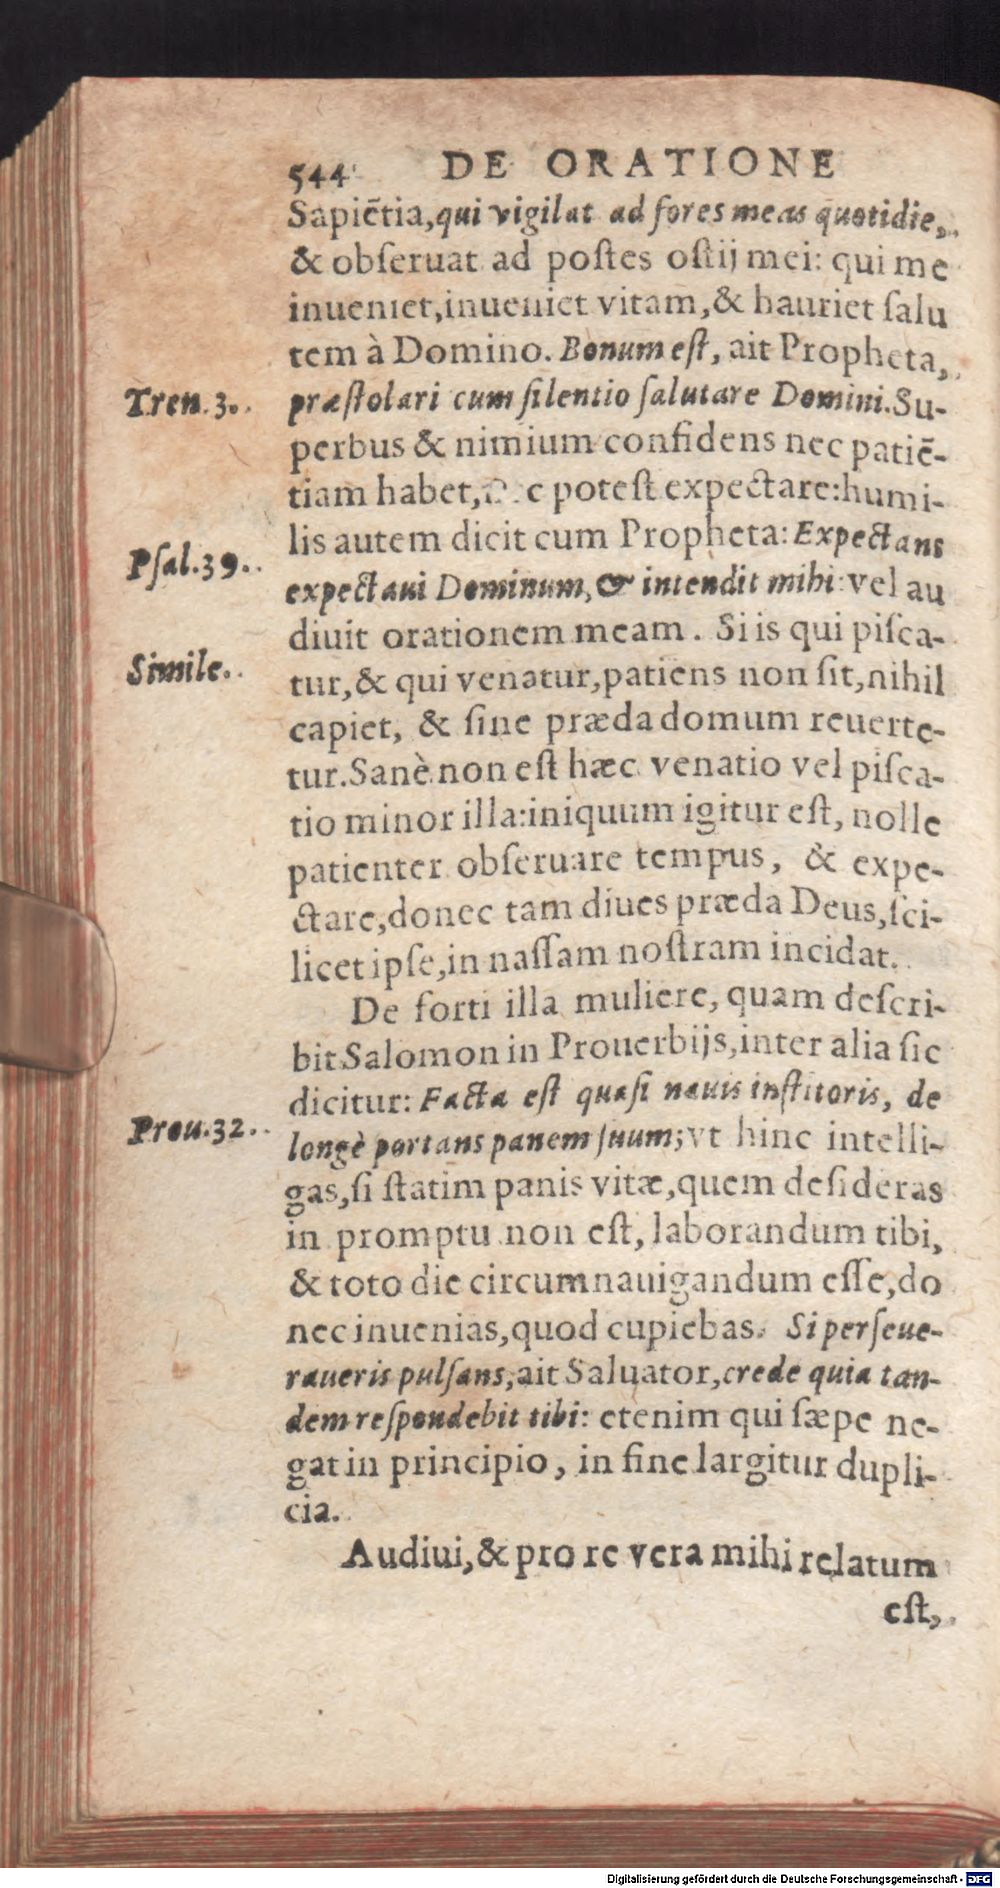 544 DE ORATIONE
Sapiẽtia, qui vigilat ad fores meas quotidie,
& obſeruat ad poſtes oſtij mei: qui me
inueniet, inueniet vitam, & hauriet ſalu
tem à Domino. Bonum eſt, ait Propheta,
Tren. 3. præſtolari cum ſilentio ſalutare Domini. Su-
perbus & nimium confidens nec patiẽ-
tiam habet, nec poteſt expectare: humi-
lis autem dicit cum Propheta: Expectans
Pſal. 39. expectaui Dominum, & intendit mihi: vel au
diuit orationem meam. Si is qui piſca-
Simile. tur, & qui venatur, patiens non ſit, nihil
capiet, & ſine præda domum reuerte-
tur. Sanè non eſt hæc venatio vel piſca-
tio minor illa: iniquum igitur eſt, nolle
patienter obſeruare tempus, & expe-
ctare, donec tam diues præda Deus, ſci-
licet ipſe, in naſſam noſtram incidat.
De forti illa muliere, quam deſcri-
bit Salomon in Prouerbijs, inter alia ſic
dicitur: Facta eſt quaſi nauis inſtitoris, de
Prou. 32. longè portans panem ſuum; vt hinc intelli-
gas, ſi ſtatim panis vitæ, quem deſideras
in promptu non eſt, laborandum tibi,
& toto die circumnauigandum eſſe, do
nec inuenias, quod cupiebas. Si perſeue-
raueris pulſans, ait Saluator, crede quia tan-
dem reſpondebit tibi: etenim qui ſæpe ne-
gat in principio, in fine largitur dupli-
cia.
Audiui, & pro re vera mihi relatum
eſt,
Digitalisierung gefördert durch die Deutsche Forschungsgemeinschaft - DFG